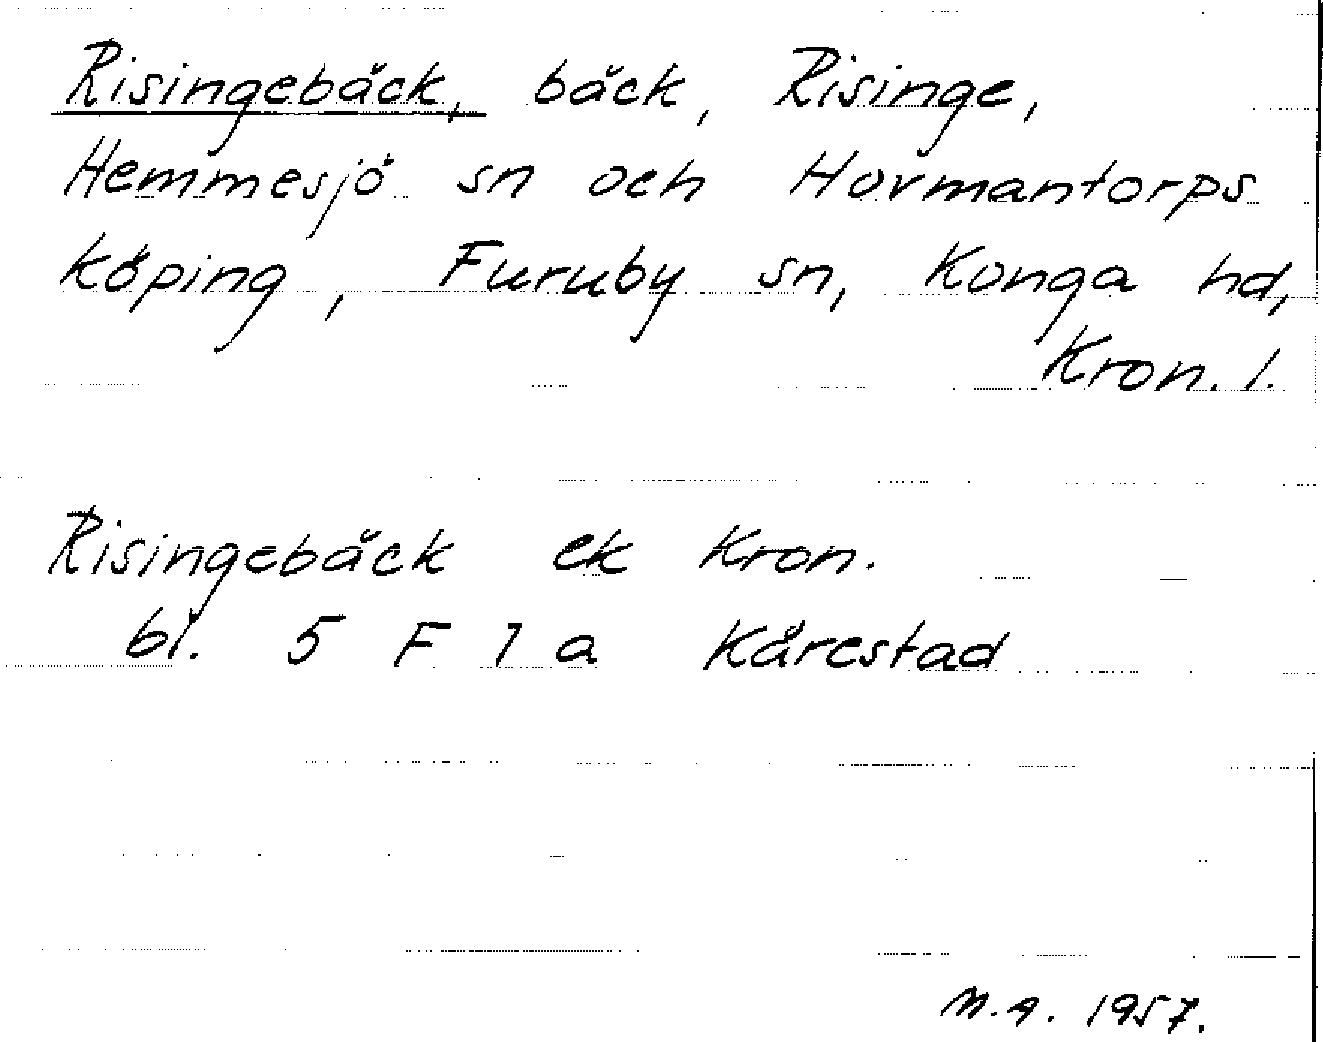 Risingebäck, bäck, Risinge,
Hemmesjö sn och Hovmantorps
köping, Furuby sn, Konga hd,
Kron. l.
Risingebäck ek Kron.
bl. 5 F 1 a Kårestad
M.A. 1957.